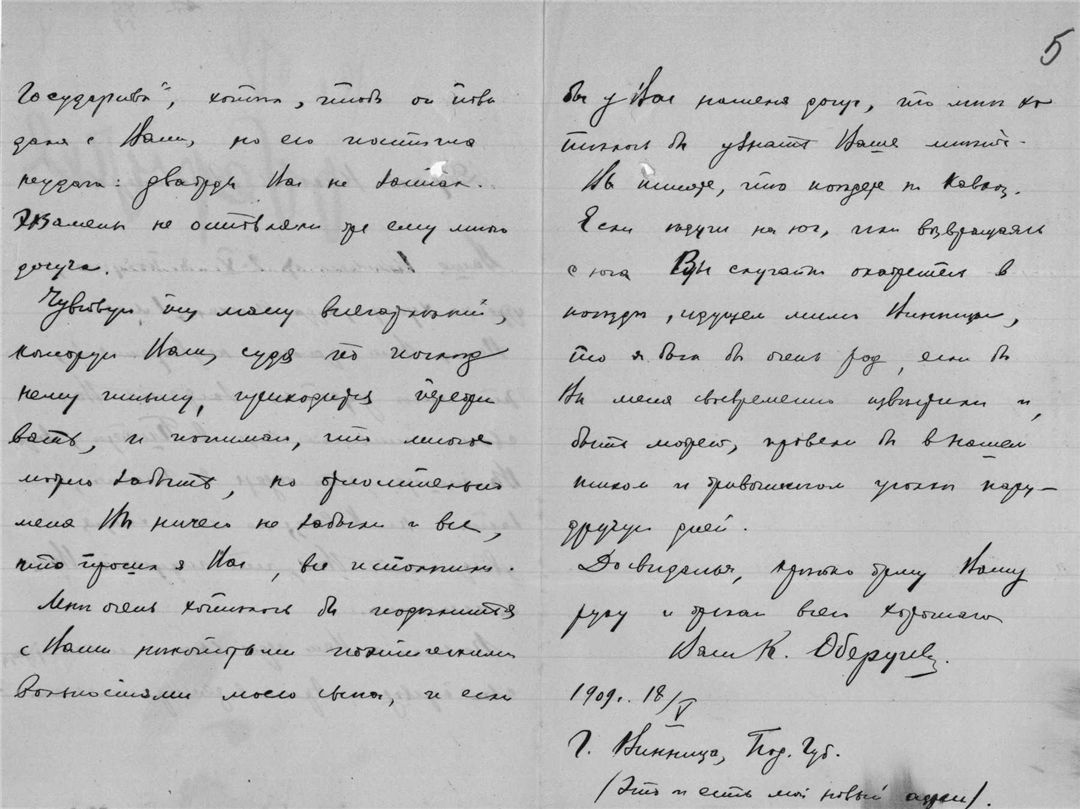 Государства", хотел, чтобы он пови
дался с Вами, но его постигла
неудача: дважды Вас не застал.
Экзамены не оставляли же ему много
досуга.
Чувствую ту массу впечатлений,
которую Вам, судя по послед
нему письму, приходится пережи
вать, и понимаю, что многое
можно забыть, но относительно
меня Вы ничего не забыли и все,
что просил я Вас, все исполнили.
Мне очень хотелось бы поделиться
с Вами некоторыми поэтическими
вольностями моего сына, и если
5
бы у Вас нашелся досуг, то мне хо
телось бы узнать Ваше мнение.
Вы пишете, что поедете на Кавказ.
Если едучи на юг, или возвращаясь
с юга Вы случайно окажетесь в
поезде, идущем мимо Винницы,
то я был бы очень рад, если бы
Вы меня своевременно известили и,
быть может, провели бы в нашем
тихом и уголке пару-
другую дней.
До свиданья, крепко жму Вашу
руку и желаю всего хорошаго
Ваш К. Оберучев.
1909. 18/V
Г. Винница, Под. Губ.
(Это и есть мой новый адрес)